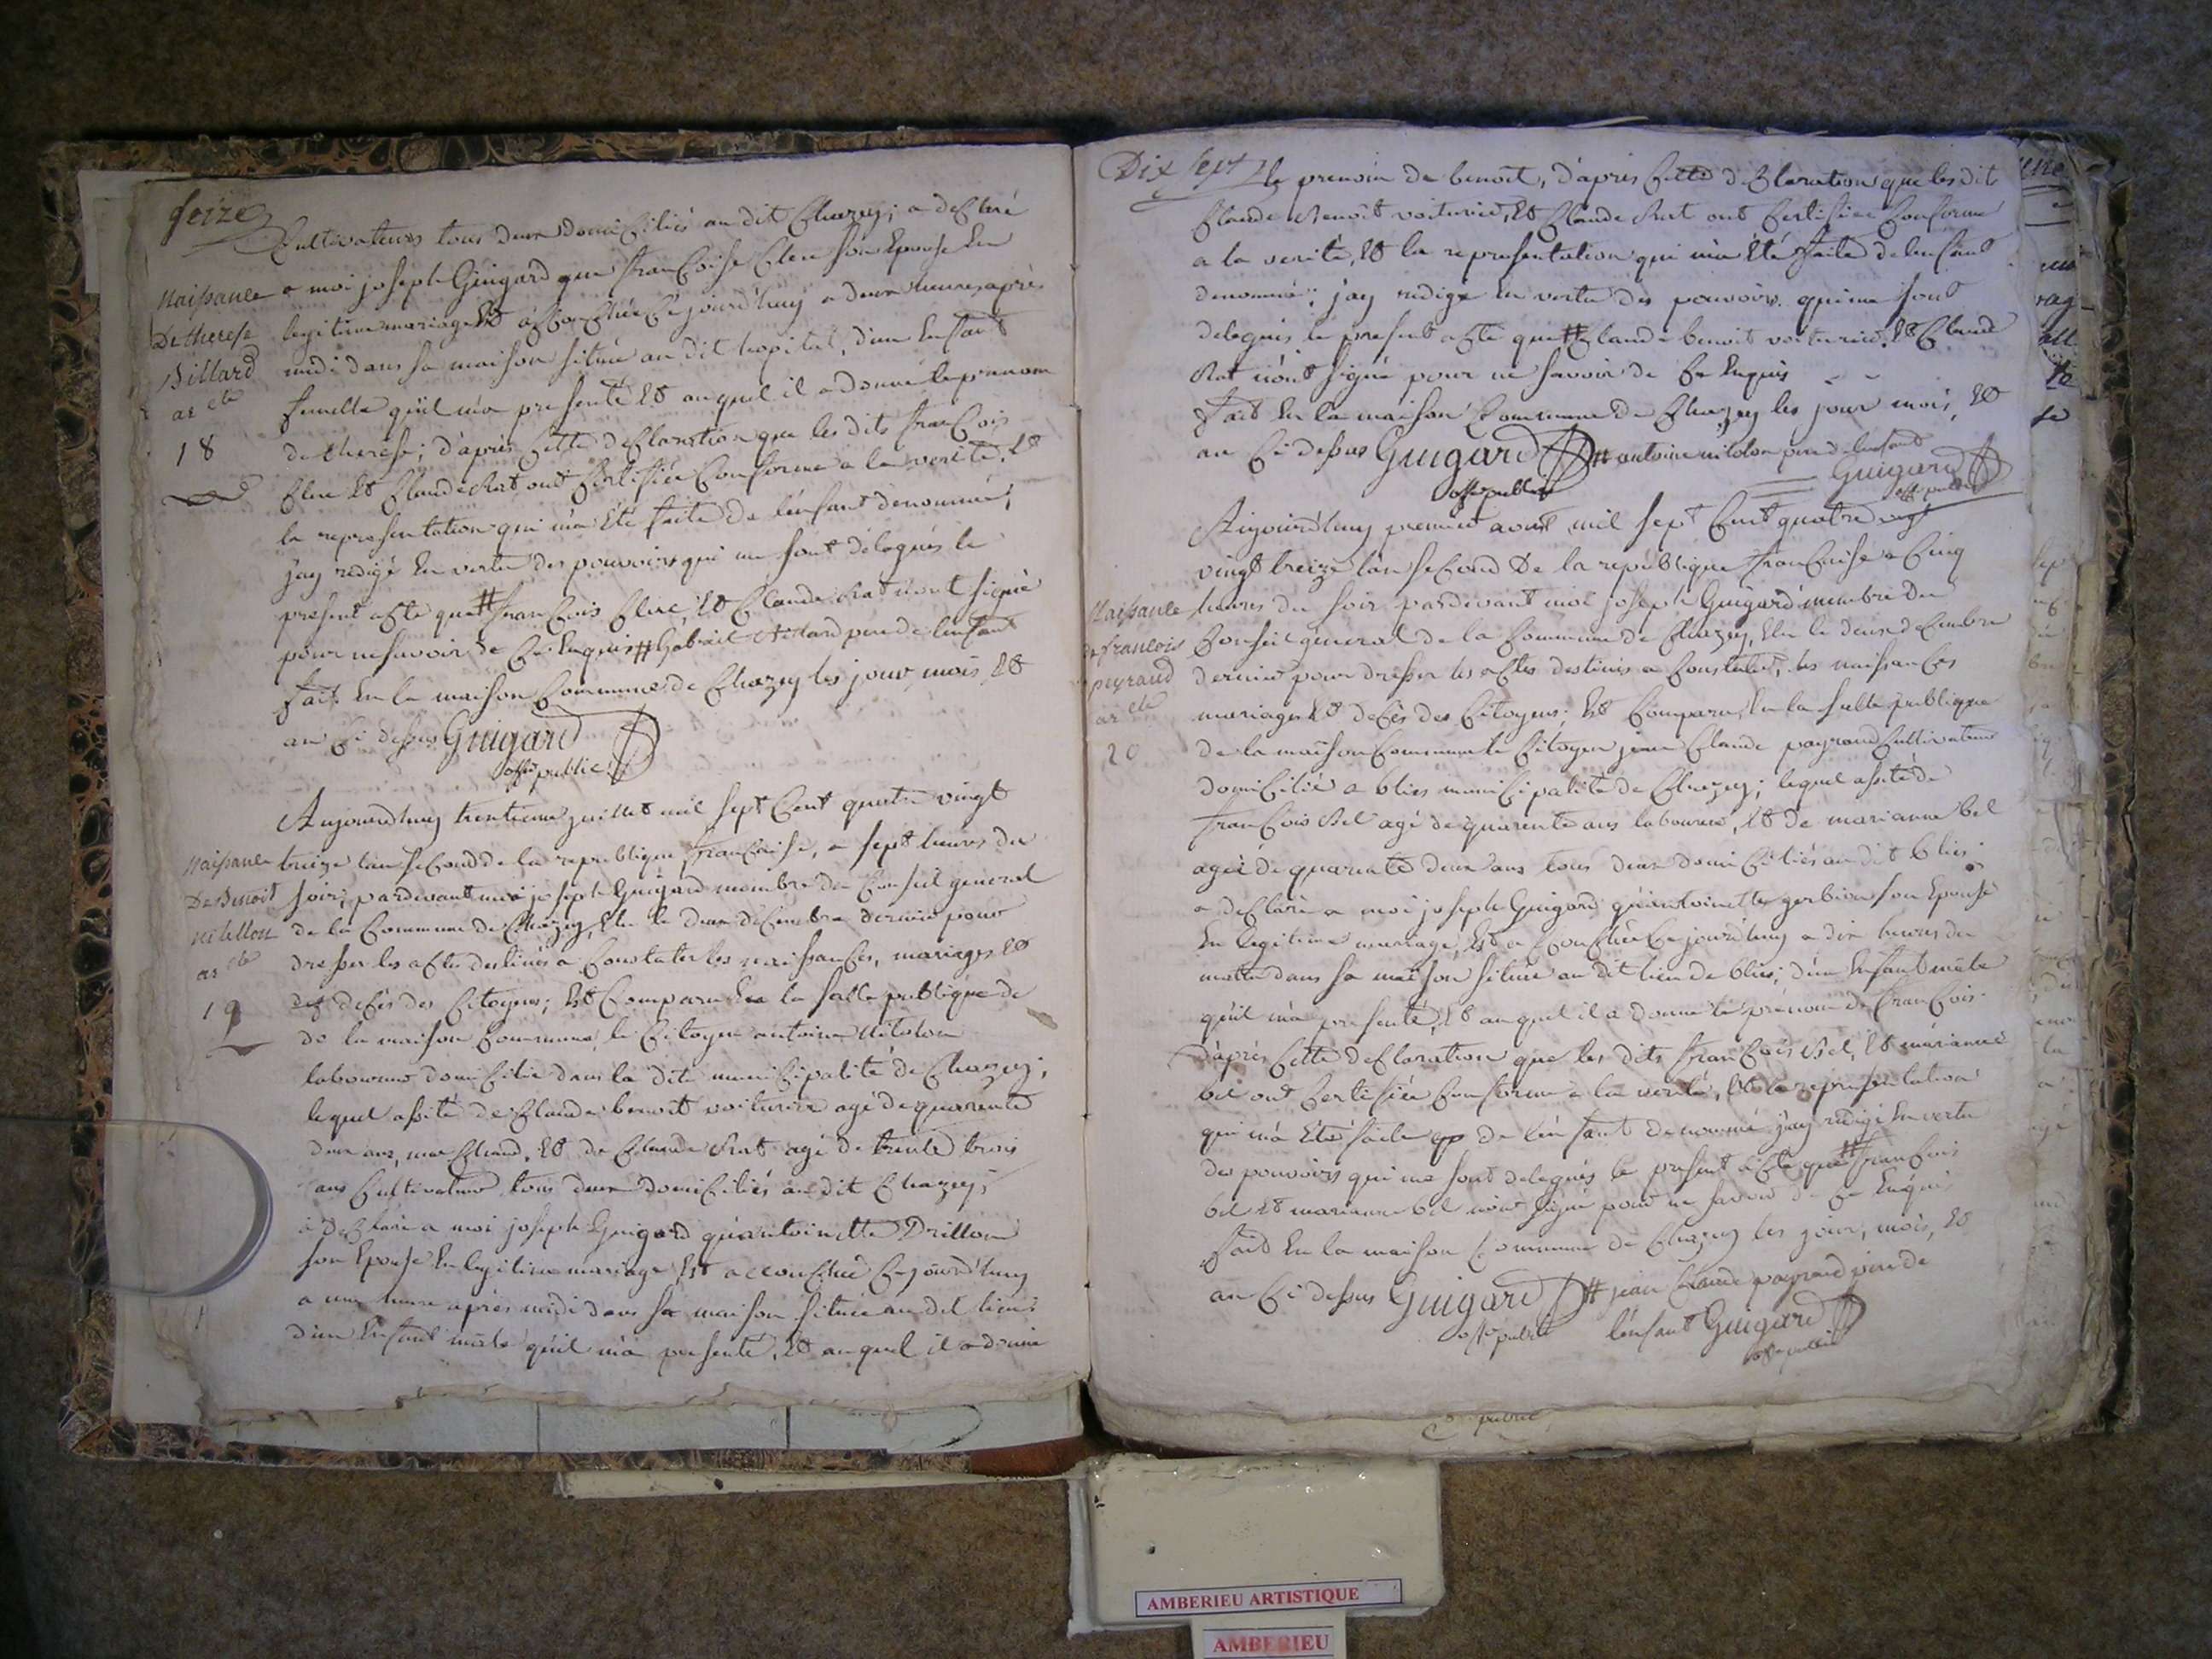 seize
Cultivateurs tous deux domiciliés au dit Chazey; a declaré
a moi joseph Guigard que francoise Clere son Epouse En
legitime mariage Est accouchée Cejourd'huy a deux heures après
midi dans sa maison située au dit hopital, d'un Enfant
femelle qu'il m'a presenté Et auquel il a donné le prenom
de therese; d'après Cette declaration que les dits francois
Clere Et Claude Rat ont Certifiée Conforme a la verité, Et
la representation qui m'a Eté faite de l'enfant denommé;
j'ay redigé En vertu des pouvoirs qui me sont délegués le
present acte que # francois Clere, Et Claude Rat n'ont signé
pour ne savoir de Ce Enquis # Gabriel Billard pere de l'enfant
fait En la maison Commune de Chazey les jour, mois, Et
an Ci dessus Guigard
offr public
Naissance
De therese
Billard
ar cle
18
Aujourd'huy trentieme juillet mil sept Cent quatre vingt
treize l'an second de la republique francaise, a sept heures du
soir; pardevant moi joseph Guigard membre du Conseil general
de la Commune de Chazey, Elu le deux decembre dernier pour
dresser les actes destinés a Constater les naissances, mariages Et
decès des Citoyens; Est Comparu En la salle publique de
de la maison Commune, le Citoyen antoine
laboureur domicilié dans la dite municipalité de Chazey;
lequel assité de Claude benoit voiturier agé de quarente
deux ans, marchand, Et de Claude Rat agé de trente trois
ans Cultivateur tous deux domiciliés au dit Chazey;
a declaré a moi joseph Guigard qu'antoinette Drillon
son Epouse En legitime mariage Est accouchée Cejourd'huy
a une heure après midi dans sa maison située au dit lieu;
d'un Enfant male qu'il m'a presenté, Et auquel il a donné
Naissance
De Benoit
ar cle
19
Dix sept
le prenom de benoit, d'après Cette declaration que les dits
Claude Benoît voiturier, Et Claude Rat ont Certifiée Conforme
a la verité, Et la representation qui m'a Eté faite de l'enfant
denommé; j'ay redigé En vertu des pouvoirs qui me sont
delegués le present acte que # Claude benoit voiturier, Et Claude
Rat n'ont signé pour ne savoir de Ce Enquis
fait En la maison Commune de Chazey les jour mois, Et
an Ci dessus Guigard # antoine pere de l'enfant
offr public Guigard
offr public
Aujourd'huy premier aoust mil sept Cent quatre vingt
vingt treize l'an second De la republique francaise a Cinq
heures du soir pardevant moi joseph Guigard membre du
Conseil general de la Commune de Chazey, Elu le deux decembre
dernier pour dresser les actes destinés a Constater les naissances
mariages Et decès des Citoyens; Est Comparu En la salle publique
de la maison Commune le Citoyen jean Claude payraud Cultivateur
domicilié a blies municipalité de Chazey; lequel assité de
francois Bel agé de quarente ans laboureur, Et de marianne bel
agée de quarente deux ans tous deux domiciliés au dit blies
a declaré a moi joseph Guigard qu'antoinette gerbion son Epouse
En legitime mariage, Est accouchée Cejourd'huy a dix heures du
matin dans sa maison située au dit lieu de blies; d'un Enfant male
qu'il m'a presenté, Et auquel il a donné le prenom de francois
d'après Cette declaration que les dits francois Bel, Et marianne
bel ont Certifiée Conforme a la verité, Et la representation
qui m'a Eté faite de l'enfant denommé j'ay redigé En vertu
des pouvoirs qui me sont delegués le present acte que # francois
bel Et marianne bel n'ont signé pour ne savoir de Ce Enquis
fait En la maison Commune de Chazey les jour, mois, Et
an Ci dessus Guigard # jean Claude payraud pere de
offr public l'enfant Guigard
offr public
Naissance
de francois
peyraud
ar cle
20
public
AMBERIEU ARTISTIQUE
AMBERIEU